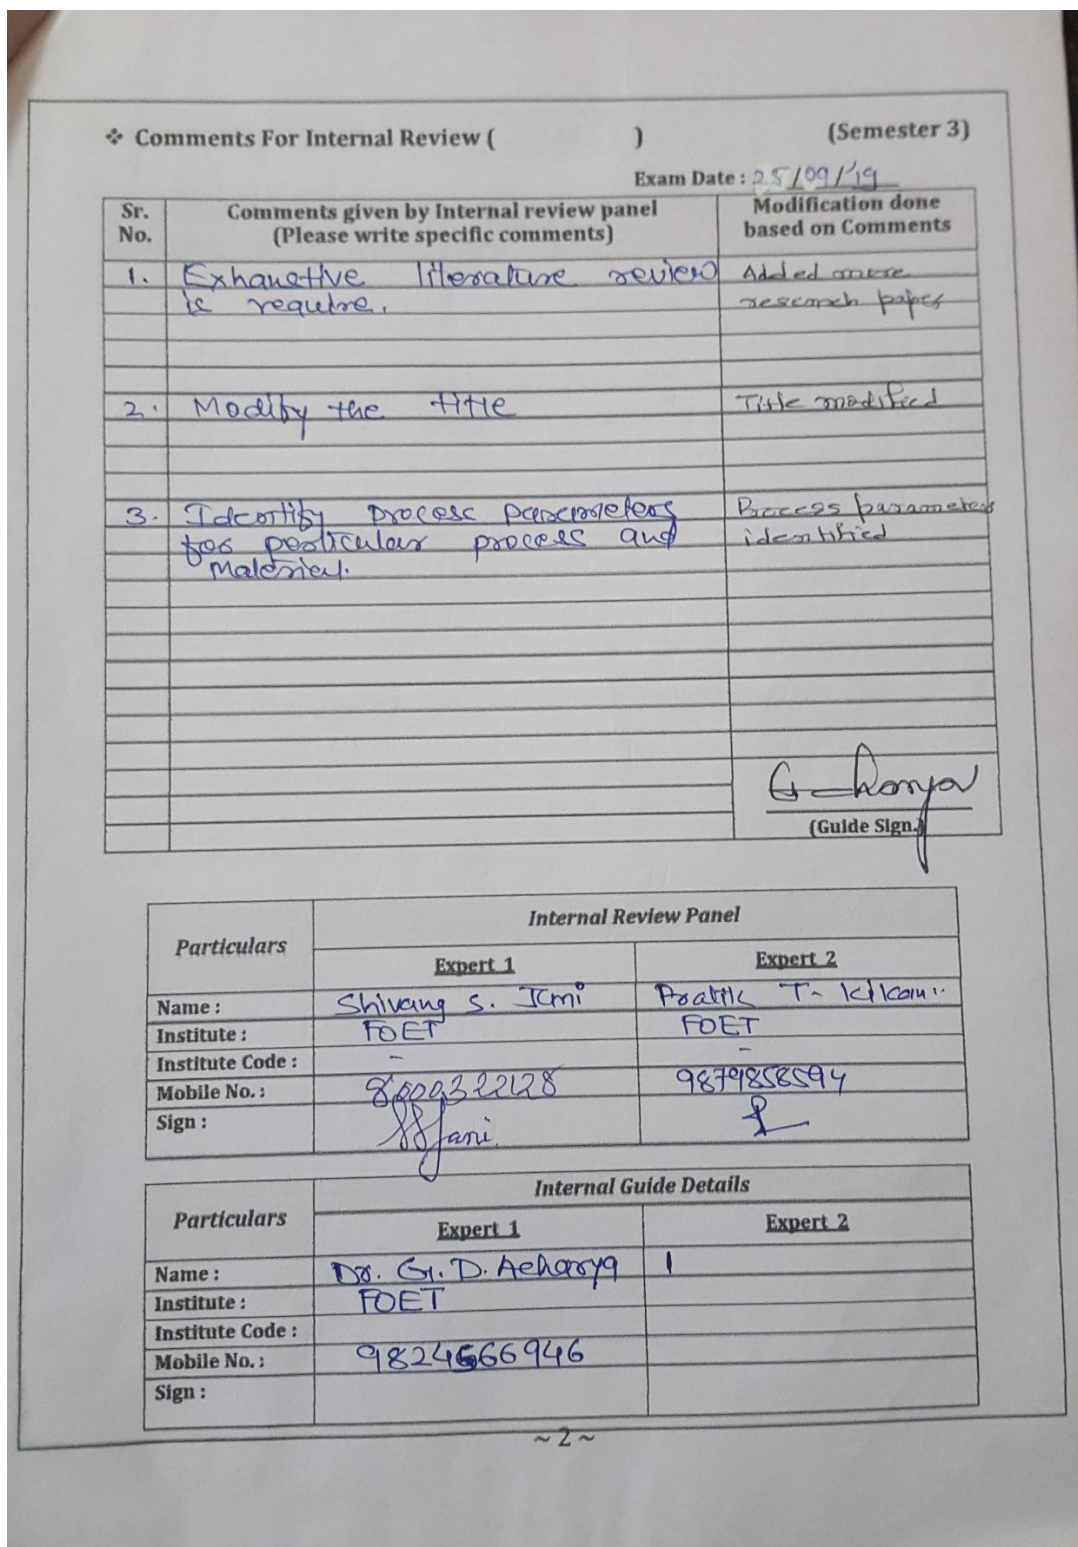 ❖ Comments For Internal Review ( ) (Semester 3)
Exam Date : 25/09/'19
Sr. No. Comments given by Internal review panel (Please write specific comments) Modification done based on Comments
1. Exhaustive literature review Added more
is require. research paper
2. Modify the title Title modified
3. Identify process parameters Process parameters
for perticular process and identified
Material.
(Guide Sign.)
Particulars Internal Review Panel
Expert 1 Expert 2
Name : Shivang S. Jani Pratik T.
Institute : FOET FOET
Institute Code : - -
Mobile No. : 9879858594
Sign : SSJani.
Particulars Internal Guide Details
Expert 1 Expert 2
Name : Dr. G. D. Acharya
Institute : FOET
Institute Code :
Mobile No. :
Sign :
~ 2 ~